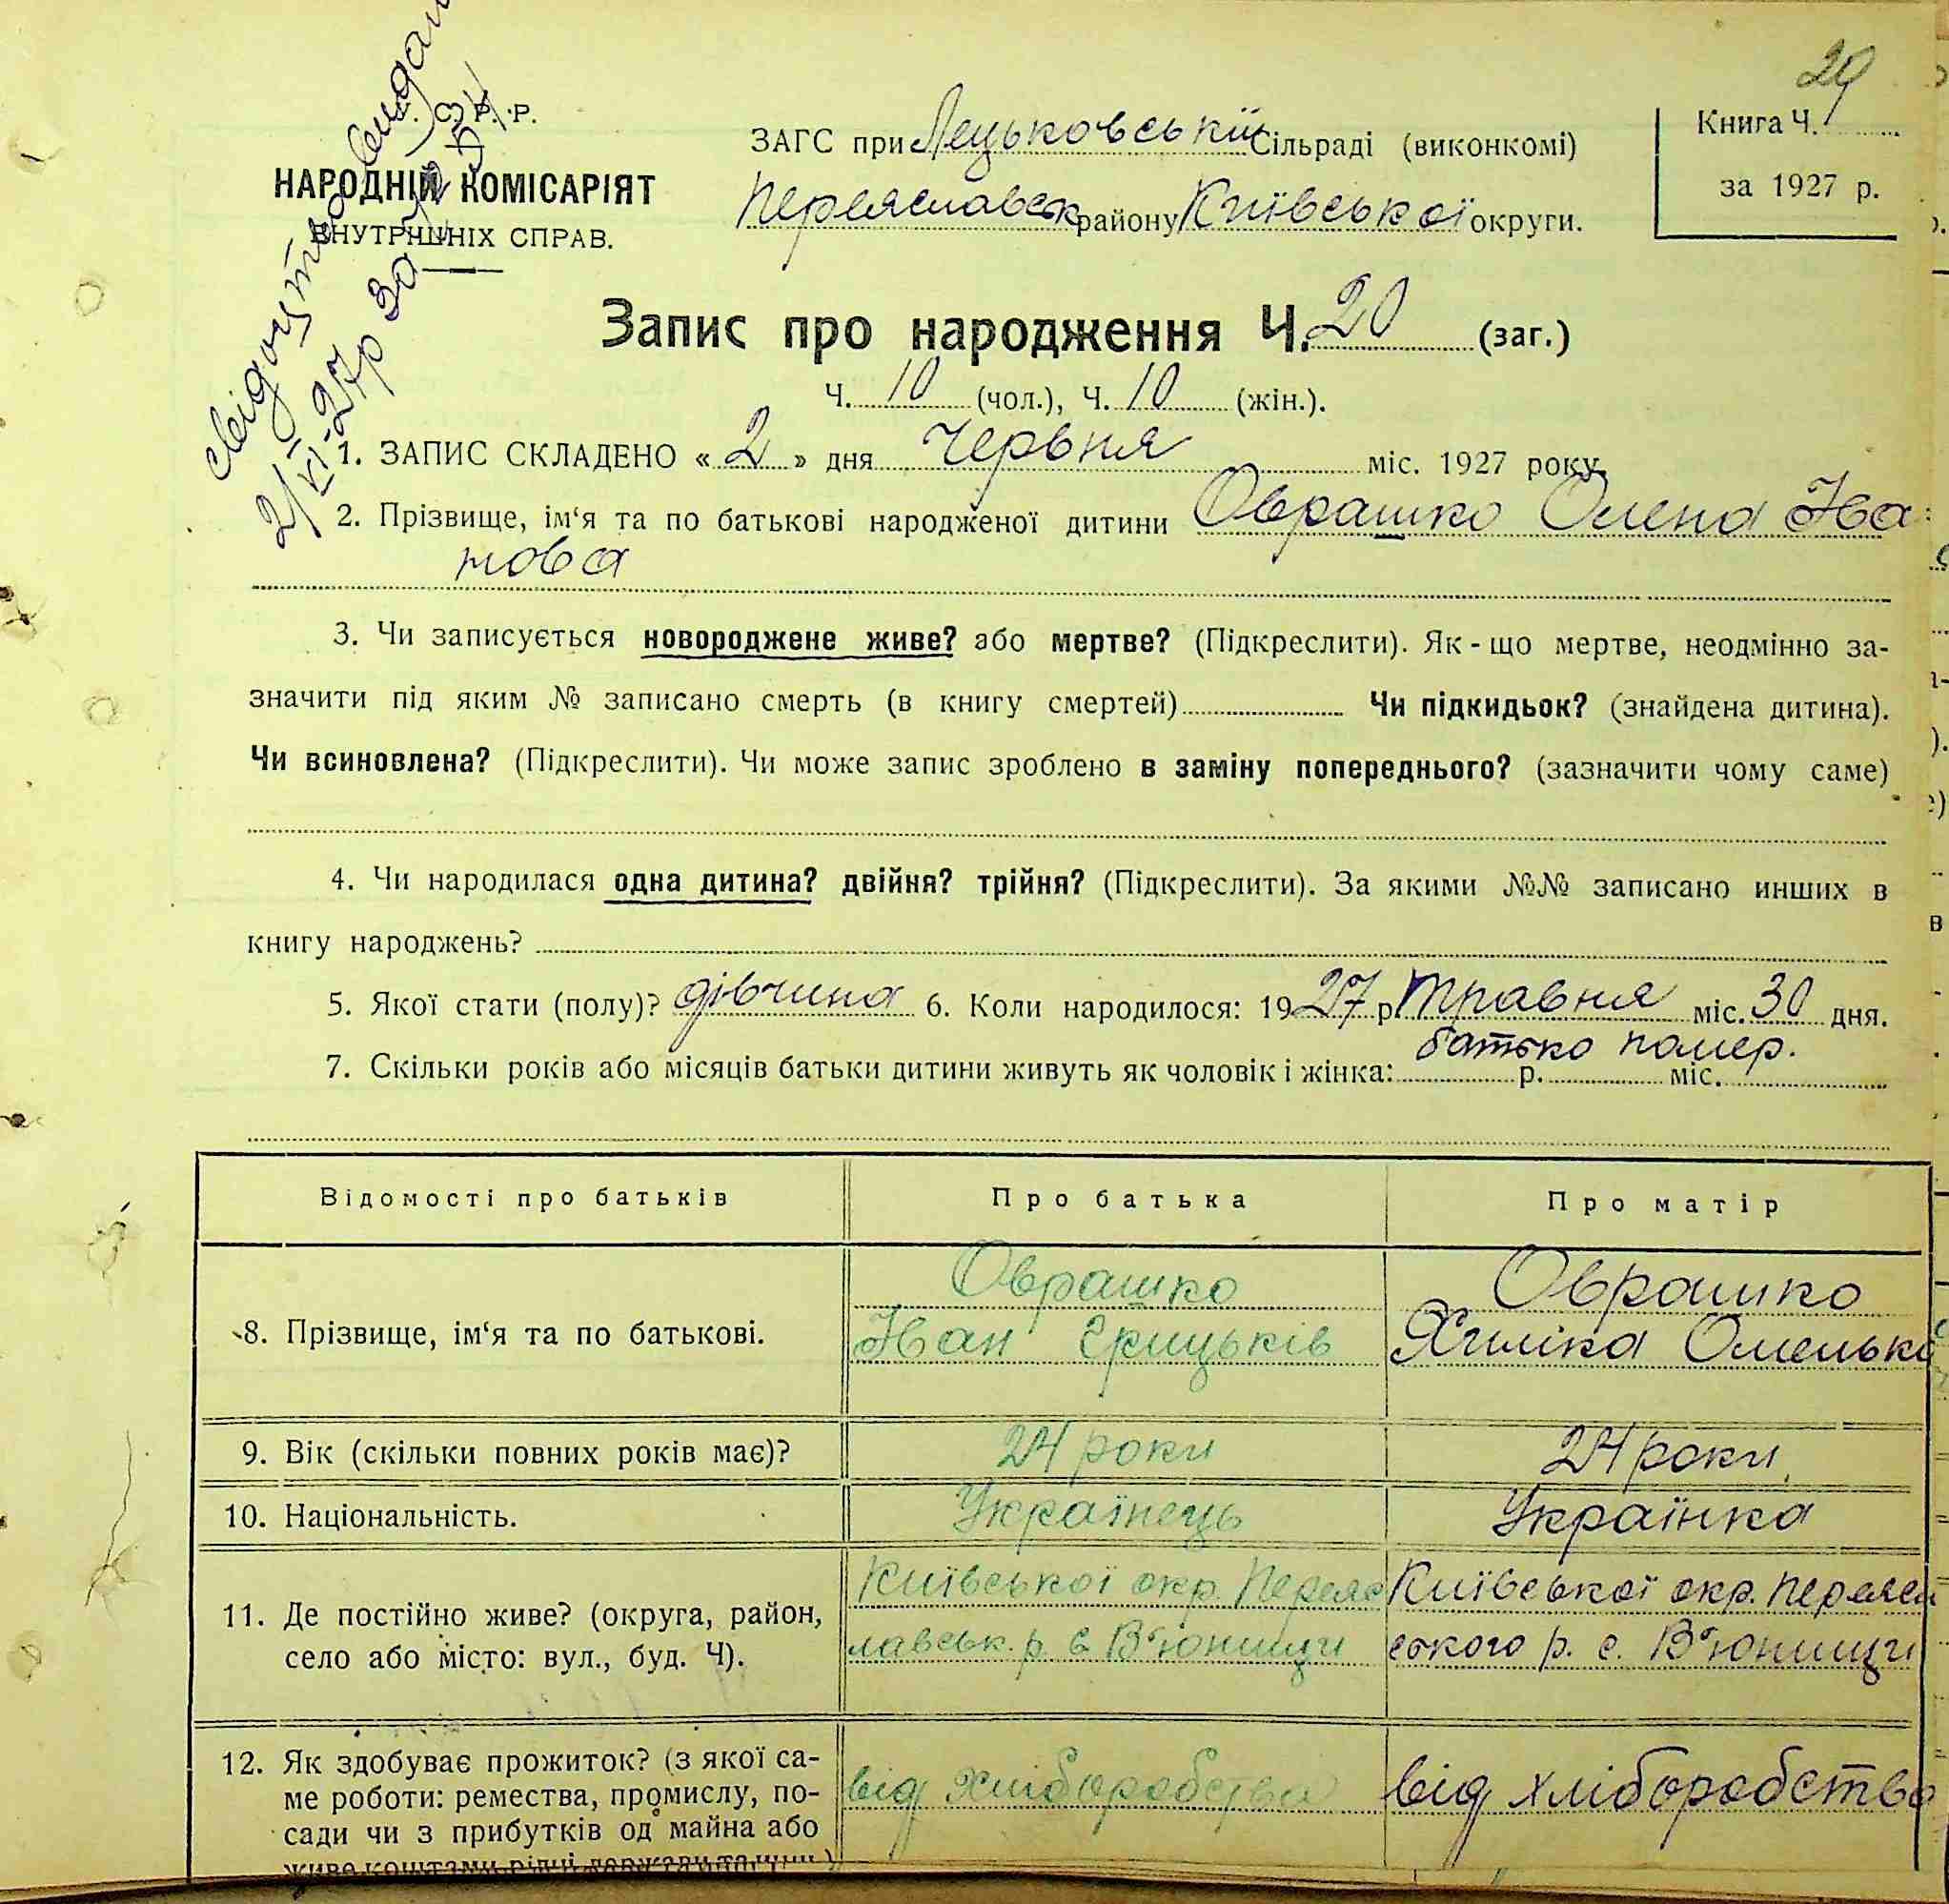 29
С. Р. Р.
НАРОДНІЙ КОМІСАРІЯТ
ВНУТРІШНІХ СПРАВ.
Свідоцтво видан
2/VI-27р за №54
ЗАГС при Лецьковській Сільраді (виконкомі)
Переяславськ району Київської округи.
Книга Ч.
за 1927 р.
Запис про народження Ч. 20 (заг.)
Ч. 10 (чол.), Ч. 10 (жін.).
1. ЗАПИС СКЛАДЕНО «2» дня Червня міс. 1927 року.
2. Прізвище, ім‘я та по батькові народженої дитини Оврашко Олена Іва
нова
3. Чи записується новороджене живе? або мертве? (Підкреслити). Як-що мертве, неодмінно за-
значити під яким № записано смерть (в книгу смертей) Чи підкидьок? (знайдена дитина).
Чи всиновлена? (Підкреслити). Чи може запис зроблено в заміну попереднього? (зазначити чому саме)
4. Чи народилася одна дитина? двійня? трійня? (Підкреслити). За якими №№ записано инших в
книгу народжень?
5. Якої стати (полу)? дівчина 6. Коли народилося: 1927 р. Травня міс. 30 дня.
7. Скільки років або місяців батьки дитини живуть як чоловік і жінка: р. міс.
батько помер.
Відомості про батьків Про батька Про матір
8. Прізвище, ім‘я та по батькові.
Оврашко
Іван Грицьків
Оврашко
Хиліка Омелько
9. Вік (скільки повних років має)? 24 роки 24 роки
10. Національність. Українець Українка
11. Де постійно живе? (округа, район,
село або місто: вул., буд. Ч).
Київської окр. Переяс
лавськ. р. с. В'юнищи
Київської окр. Переясл
ського р. с. В'юнищи
12. Як здобуває прожиток? (з якої са-
ме роботи: ремества, промислу, по-
сади чи з прибутків од майна або
від Хліборобства
від хліборобства